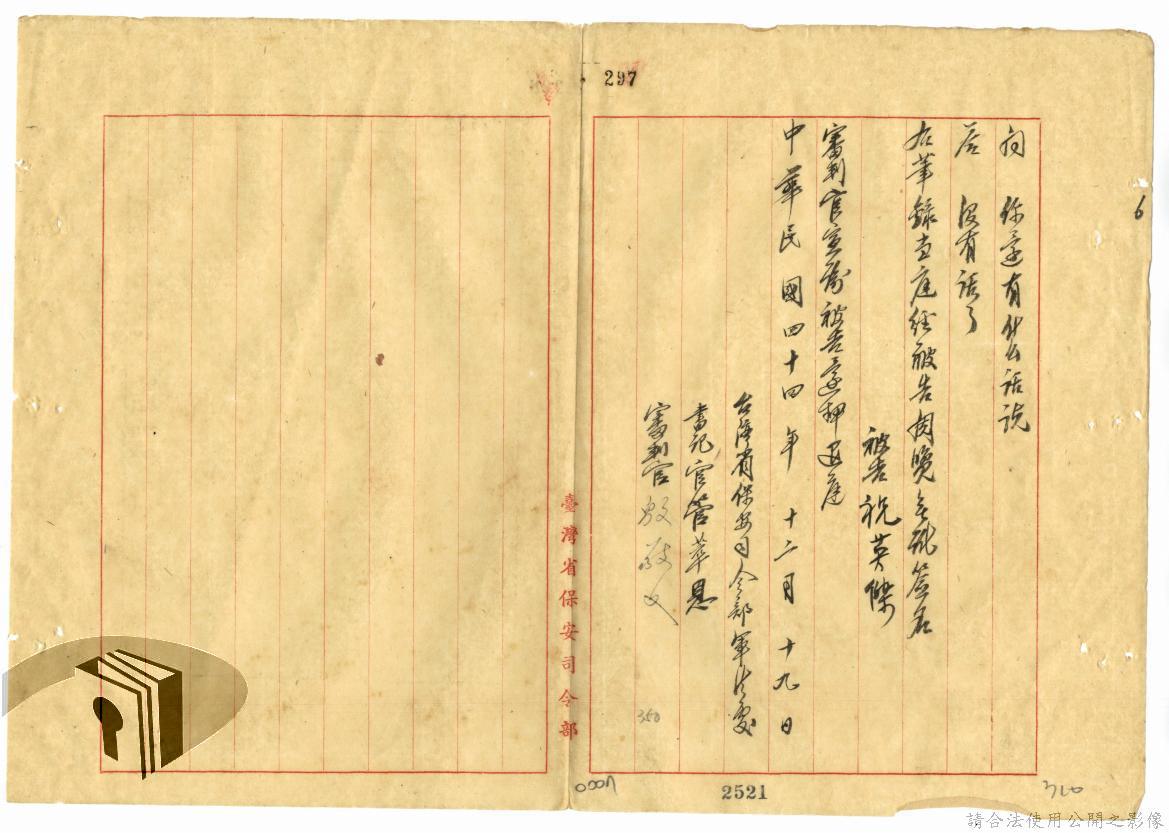 297
6
问 你還有什么話説
答 没有話了
右筆録当庭经被告閲覽無訛簽名
被告 祝英傑
審判官宣佈被告還押退庭
中華民國四十四年十二月十九日
台灣省保安司令部軍法處
書記官 管華恩
審判官 殷敬文
350
臺灣省保安司令部
2521
請合法使用公開之影像